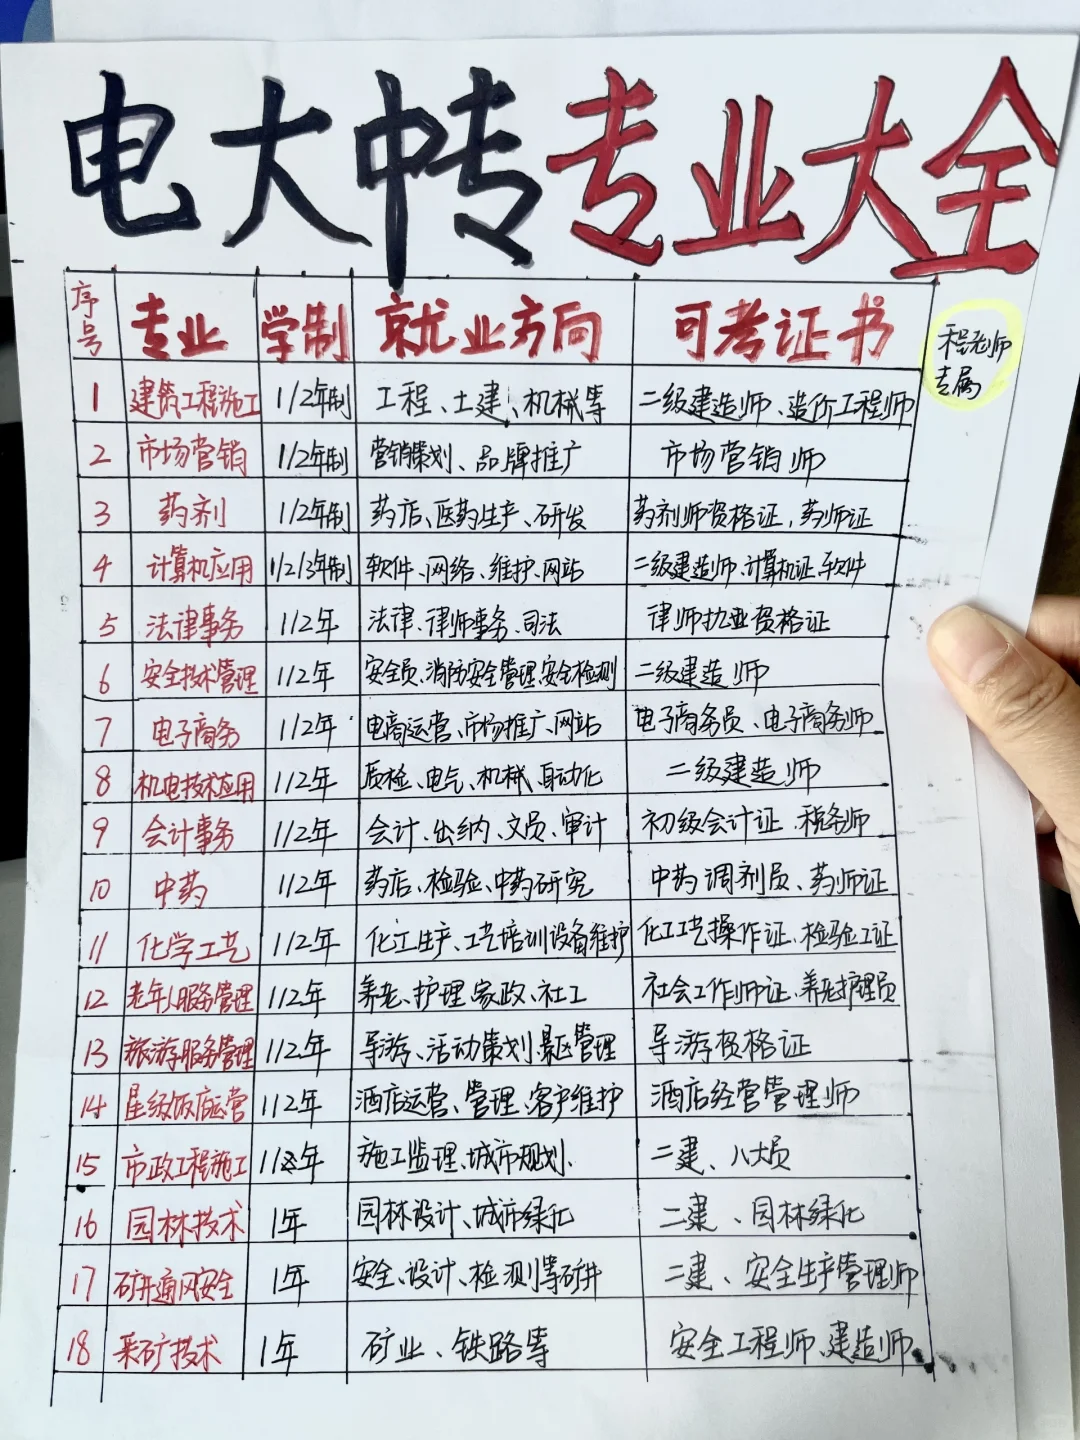 电大中专专业大全
序号 专业 学制 就业方向 可考证书
程老师
专属
1 建筑工程施工 1/2年制 工程、土建、机械等 二级建造师、造价工程师
2 市场营销 1/2年制 营销策划、品牌推广 市场营销师
3 药剂 1/2年制 药店、医药生产、研发 药剂师资格证，药师证
4 计算机应用 1/2/3年制 软件、网络、维护、网站 二级建造师、计算机证、软件
5 法律事务 1/2年 法律、律师事务、司法 律师执业资格证
6 安全技术管理 1/2年 安全员、消防安全管理、安全检测 二级建造师
7 电子商务 1/2年 电商运营、市场推广、网站 电子商务员、电子商务师
8 机电技术应用 1/2年 质检、电气、机械、自动化 二级建造师
9 会计事务 1/2年 会计、出纳、文员、审计 初级会计证、税务师
10 中药 1/2年 药店、检验、中药研究 中药调剂员、药师证
11 化学工艺 1/2年 化工生产、工艺培训设备维护 化工工艺操作证、检验工证
12 老年人服务管理 1/2年 养老、护理、家政、社工 社会工作师证、养老护理员
13 旅游服务管理 1/2年 导游、活动策划、景区管理 导游资格证
14 星级饭店运营 1/2年 酒店运营、管理、客户维护 酒店经营管理师
15 市政工程施工 1/2年 施工监理、城市规划、 二建、八大员
16 园林技术 1年 园林设计、城市绿化 二建、园林绿化
17 矿井通风安全 1年 安全、设计、检测等矿井 二建、安全生产管理师
18 采矿技术 1年 矿业、铁路等 安全工程师、建造师